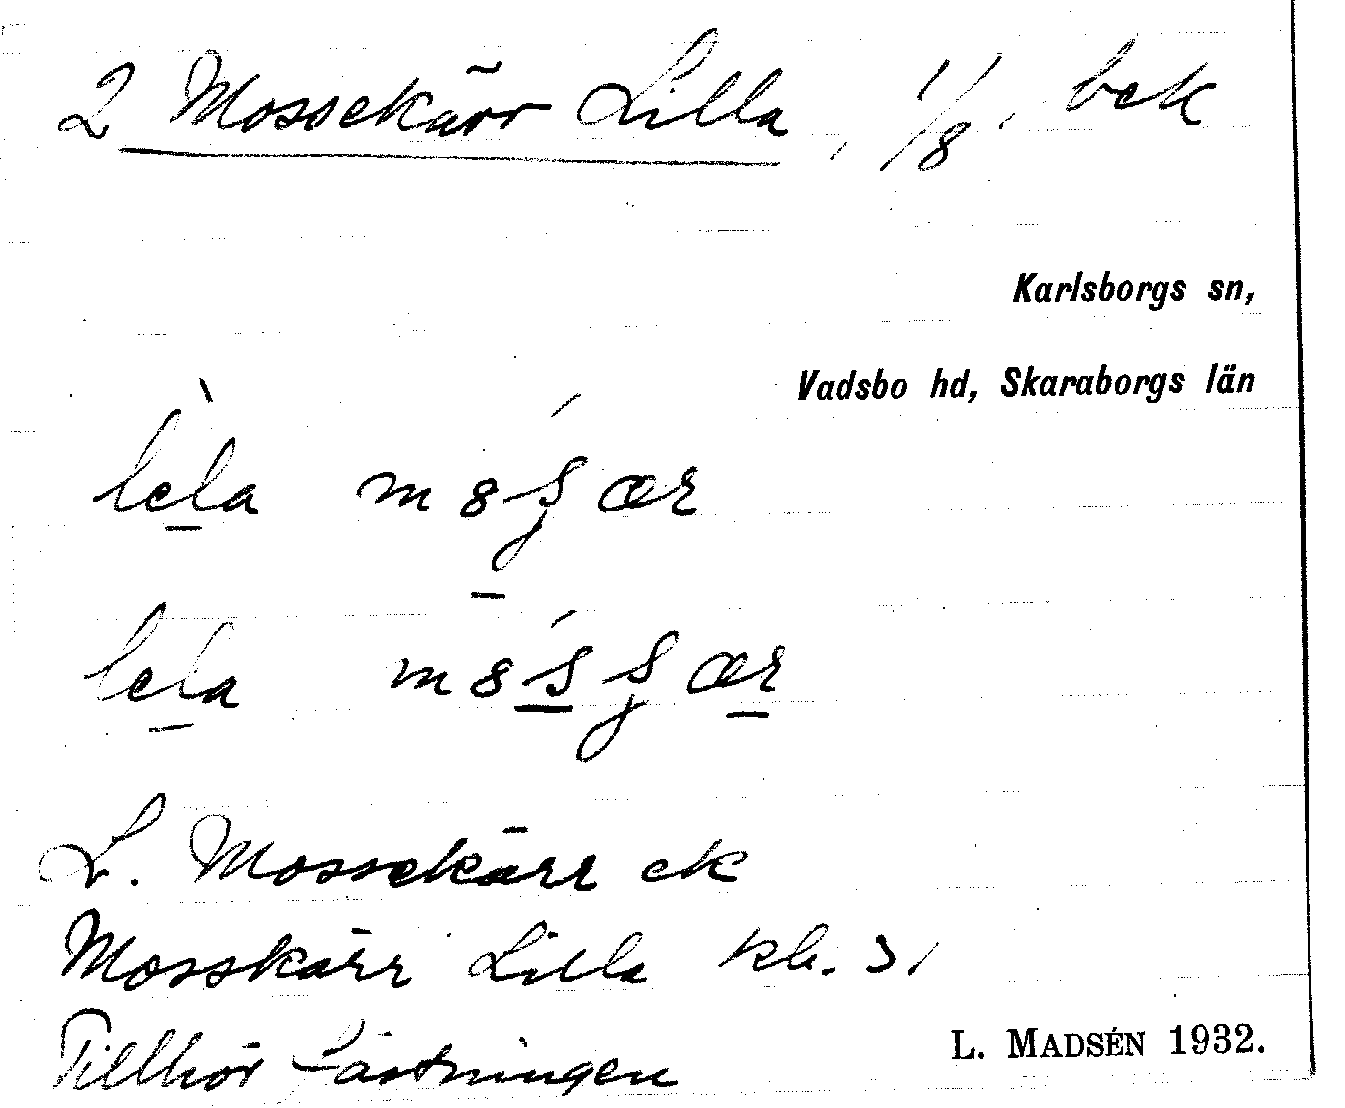 2 Mossekärr Lilla, 1/8, bek
Karlsborgs sn,
Vadsbo hd, Skaraborgs län
lela
lela
L. Mossekärr ek
Mosskärr Lilla kb. 31
Tillhör Fästningen
L. MADSÉN 1932.